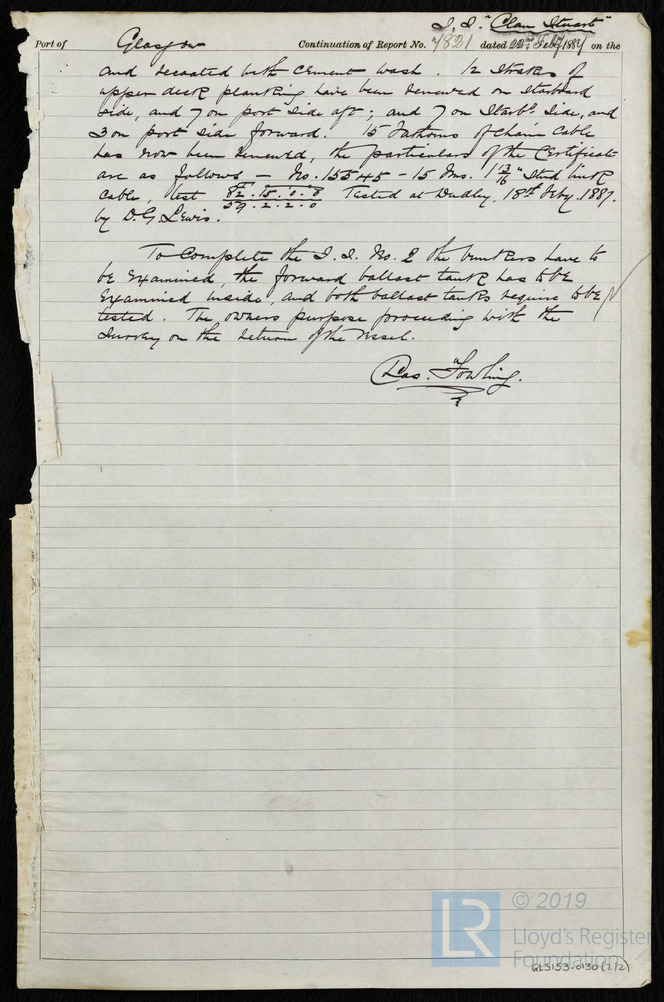 S.S. "Clan Stuart"
Port of Glasgow Continuation of Report No. 7821 dated 22nd Feby 1887 on the
and recoated with cement wash. 12 Strakes of
upper deck planking have been renewed on Starboard
side, and 7 on port side aft; and 7 on Starbd. side, and
3 on port side forward. 15 fathoms of chain cable
has now been renewed, the particulars of the Certificate
are as follows — No. 15545 — 15 fms. 1 3/16" Stud link
cable, test 82.15.0.0 / 59.2.2.0 Tested at Dudley, 18th Feby. 1887.
by D.G. Lewis.
To Complete the S.S. No. 2 the bunkers have to
be Examined, the forward ballast tank has to be
Examined inside, and both ballast tanks require to be
tested. The owners purpose proceeding with the
Survey on the return of the vessel.
Jas. Fowling.
LR
© 2019
Lloyd's Register
Foundation
GLS153-0130 (2/2)